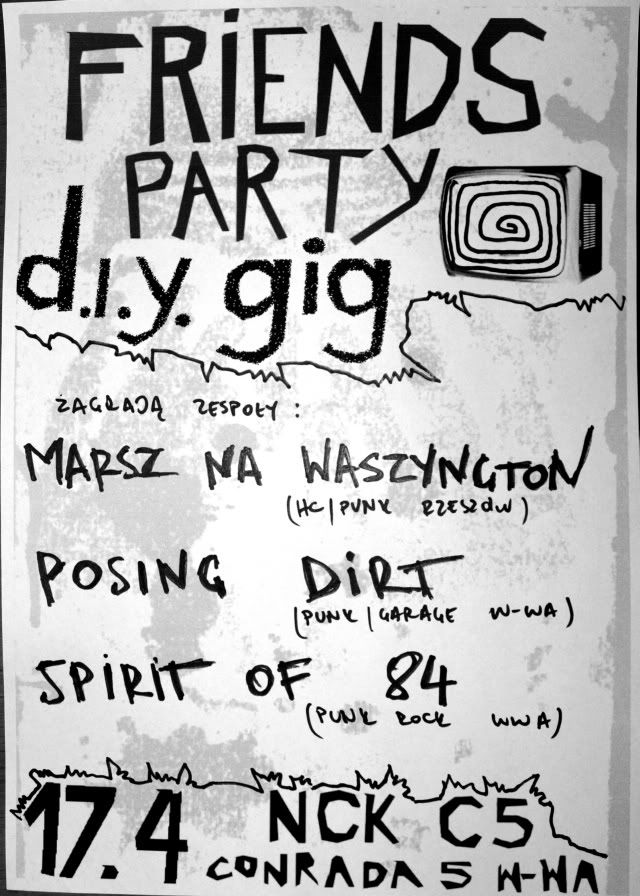 FRiENDS
PARTY
d.i.y. gig
ZAGRAJĄ ZESPOŁY :
MARSZ NA WASZYNGTON
(HC/PUNK RZESZÓW)
POSING DiRT
(PUNK/GARAGE W-WA)
SPiRiT OF 84
(PUNK ROCK WWA)
17.4 NCK C5
CONRADA 5 W-WA